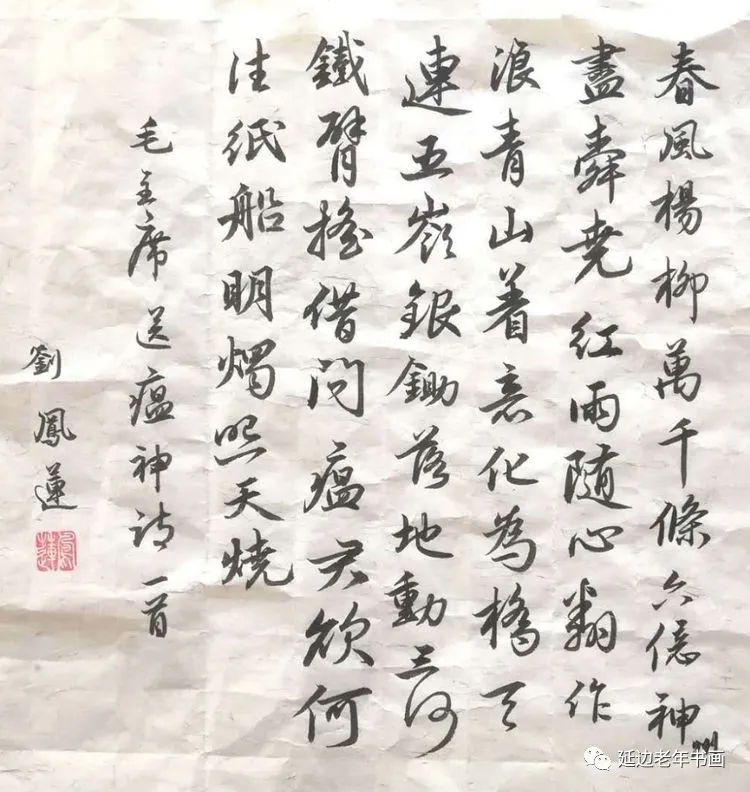 春風楊柳萬千條六億神州
盡舜堯紅雨隨心翻作
浪青山着意化為橋天
連五嶺銀鋤落地動三河
鐵臂搖借問瘟君欲何
往紙船明燭照天燒
毛主席送瘟神詩一首
劉鳳蓮
鳳蓮
延边老年书画